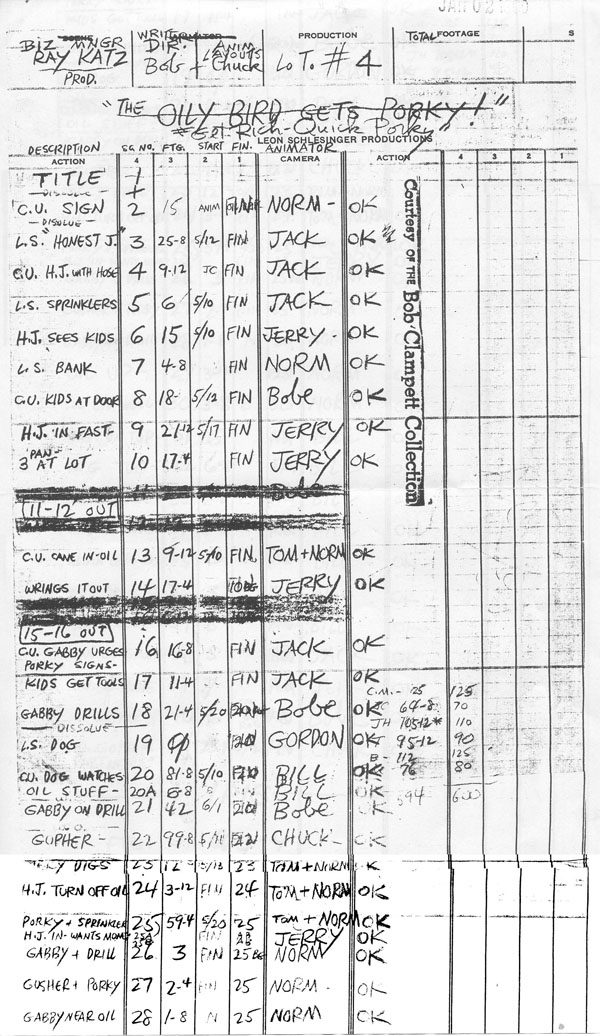 BIZ MNGR
RAY KATZ
PROD.
WRITER
DIR.
Bob + Chuck
ANIM LAYOUTS
PRODUCTION
LOT. # 4
TOTAL FOOTAGE S
"THE OILY BIRD GETS PORKY!"
"Get-Rich-Quick Porky"
LEON SCHLESINGER PRODUCTIONS
DESCRIPTION SC. NO. FTG. START FIN. ANIMATOR
ACTION 4 3 2 1 CAMERA ACTION 4 3 2 1
TITLE 1
DISSOLVE
C.U. SIGN 2 15 ANIM NORM - OK
DISOLUE
L.S. "HONEST J." 3 25-8 5/12 FIN JACK OK
C.U. H.J. WITH HOSE 4 9-12 JC FIN JACK OK
L.S. SPRINKLERS 5 6 5/10 FIN JACK OK
H.J. SEES KIDS 6 15 5/10 FIN JERRY - OK
L.S. BANK 7 4-8 FIN NORM OK
C.U. KIDS AT DOOR 8 18- 5/12 FIN Bobe OK
H.J. IN FAST- 9 21-12 5/17 FIN JERRY OK
3 PAN AT LOT 10 17-4 FIN JERRY OK
11-12 OUT
C.U. CANE IN-OIL 13 9-12 5/10 FIN. TOM+NORM OK
WRINGS IT OUT 14 17-4 JERRY OK
15-16 OUT
C.U. GABBY URGES PORKY SIGNS- 16 16-8 FIN JACK OK
KIDS GET TOOLS 17 11-4 FIN JACK OK
C.M.- 25 125
GABBY DRILLS 18 21-4 5/20 Bobe OK
64-8 70
DISSOLVE
JH 70512* 110
L.S. DOG 19 GORDON OK
95-12 90
B- 112 125
CU. DOG WATCHES 20 81-8 5/10 BILL OK
76 80
OIL STUFF- 20A 6-8 BILL OK
594 600
GABBY ON DRILL 21 42 6/1 Bobe OK
GUPHER - 22 99-8 CHUCK OK
DIGS 23 12 23 TOM+NORM OK
H.J. TURN OFF OIL 24 3-12 FIN 24 TOM+NORM OK
PORKY + SPRINKLER 25 59-4 5/20 25 TOM + NORM OK
H.J. IN-WANTS MOMS 25A 25B FIN JERRY OK
GABBY + DRILL 26 3 FIN 25 NORM OK
GUSHER + PORKY 27 2-4 FIN 25 NORM - OK
GABBY NEAR OIL 28 1-8 N 25 NORM OK
Courtesy of the Bob Clampett Collection